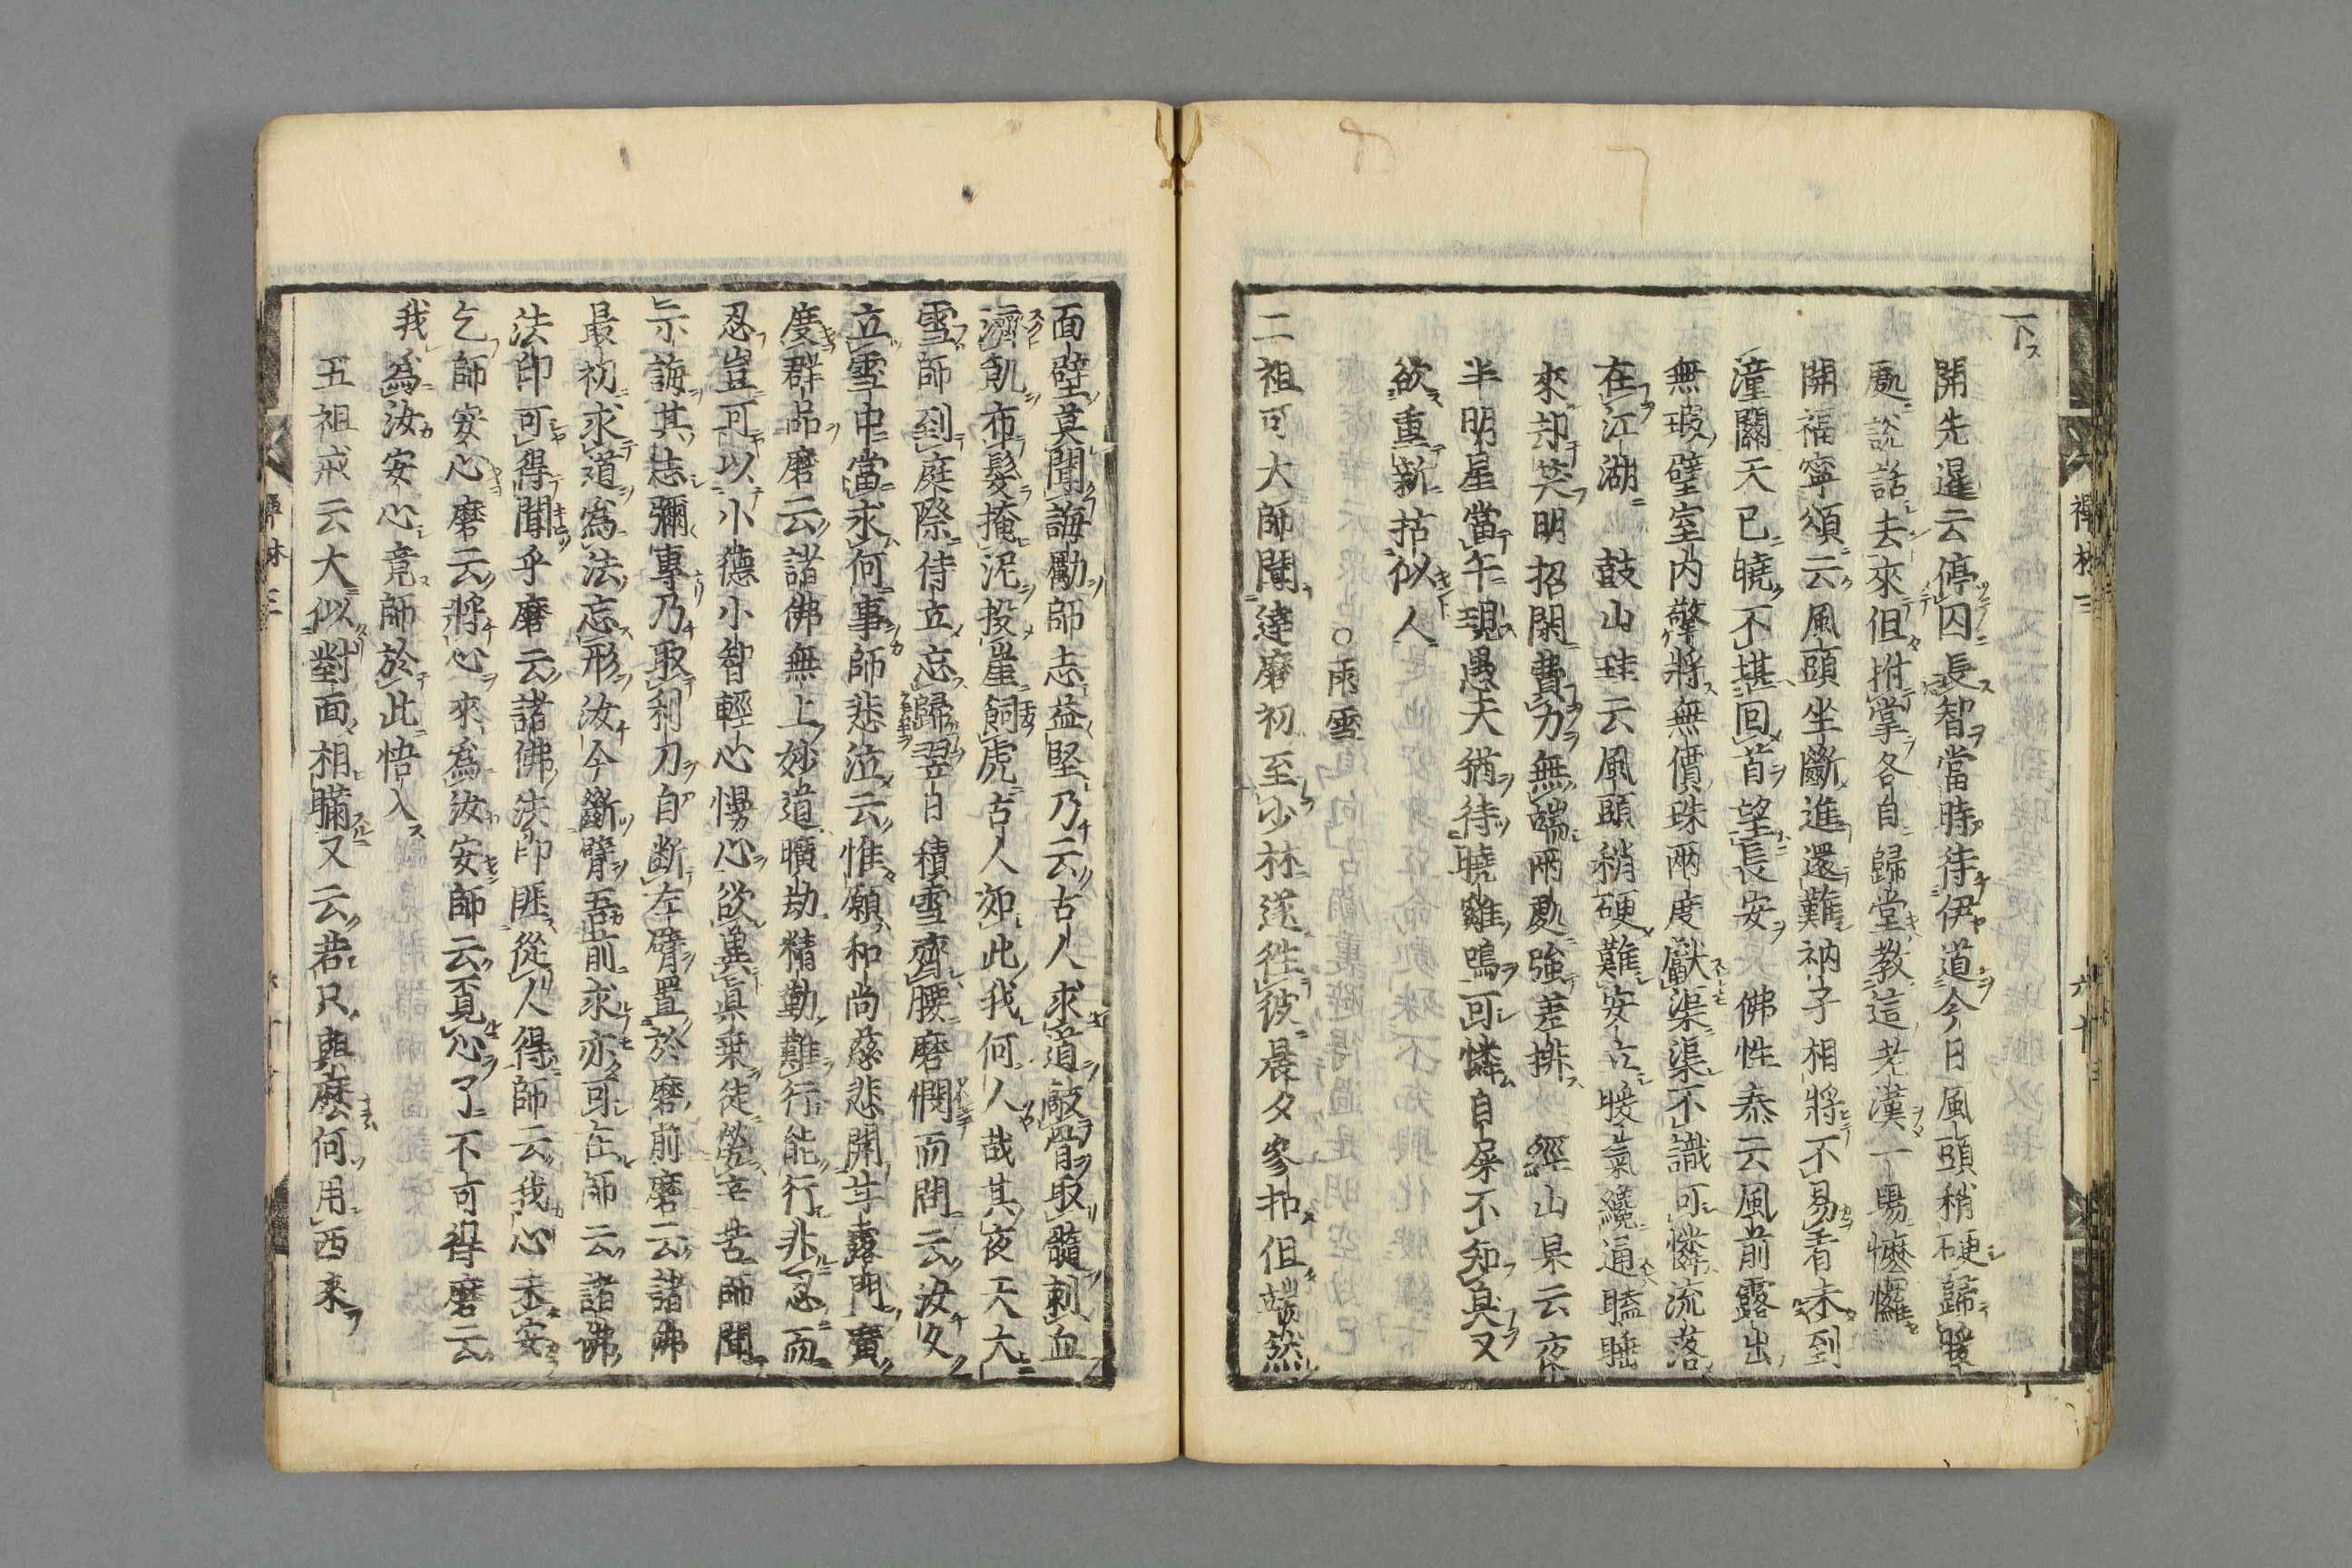 下
開先暹云停囚長智當時待伊道今日風頭稍硬歸暖
處說話去來但拊掌各自歸堂教這老漢一場懡㦬
開福寧頌云風頭坐斷進還難衲子相將不易看未到
潼關天已曉不堪回首望長安　佛性泰云風前露出
無瑕璧室內擎將無價珠兩度獻渠渠不識可憐流落
在江湖　鼓山珪云風頭稍硬難安立暖氣纔通瞌睡
來却笑明招閑費力無端兩處強差排　經山杲云夜
半明星當午現愚夫猶待曉雞鳴可憐自屎不知臭又
欲重新拈似人
○雨雪
二祖可大師聞達磨初至少林遂往彼晨夕參扣但端然
禪林三
六十
面壁莫聞誨勵師志益堅乃云古人求道敲骨取髓刺血
濟飢布髮掩泥投崖飼虎古人如此我何人哉其夜天大
雪師到庭際侍立忘歸翌日積雪齊腰磨憫而問云汝久
立雪中當求何事師悲泣云惟願和尚慈悲開甘露門廣
度群品磨云諸佛無上妙道曠劫精勤難行能行非忍而
忍豈可以小德小智輕心慢心欲冀真乘徒勞辛苦師聞
示誨其志彌專乃取利刀自断左臂置於磨前磨云諸佛
最初求道為法忘形汝今斷臂吾前求亦可在師云諸佛
法印可得聞乎磨云諸佛法印匪從人得師云我心未安
乞師安心磨云將心來為汝安師云覓心了不可得磨云
我為汝安心竟師於此悟入
五祖戒云大似對面相瞞又云若只與麼何用西來
禪林三